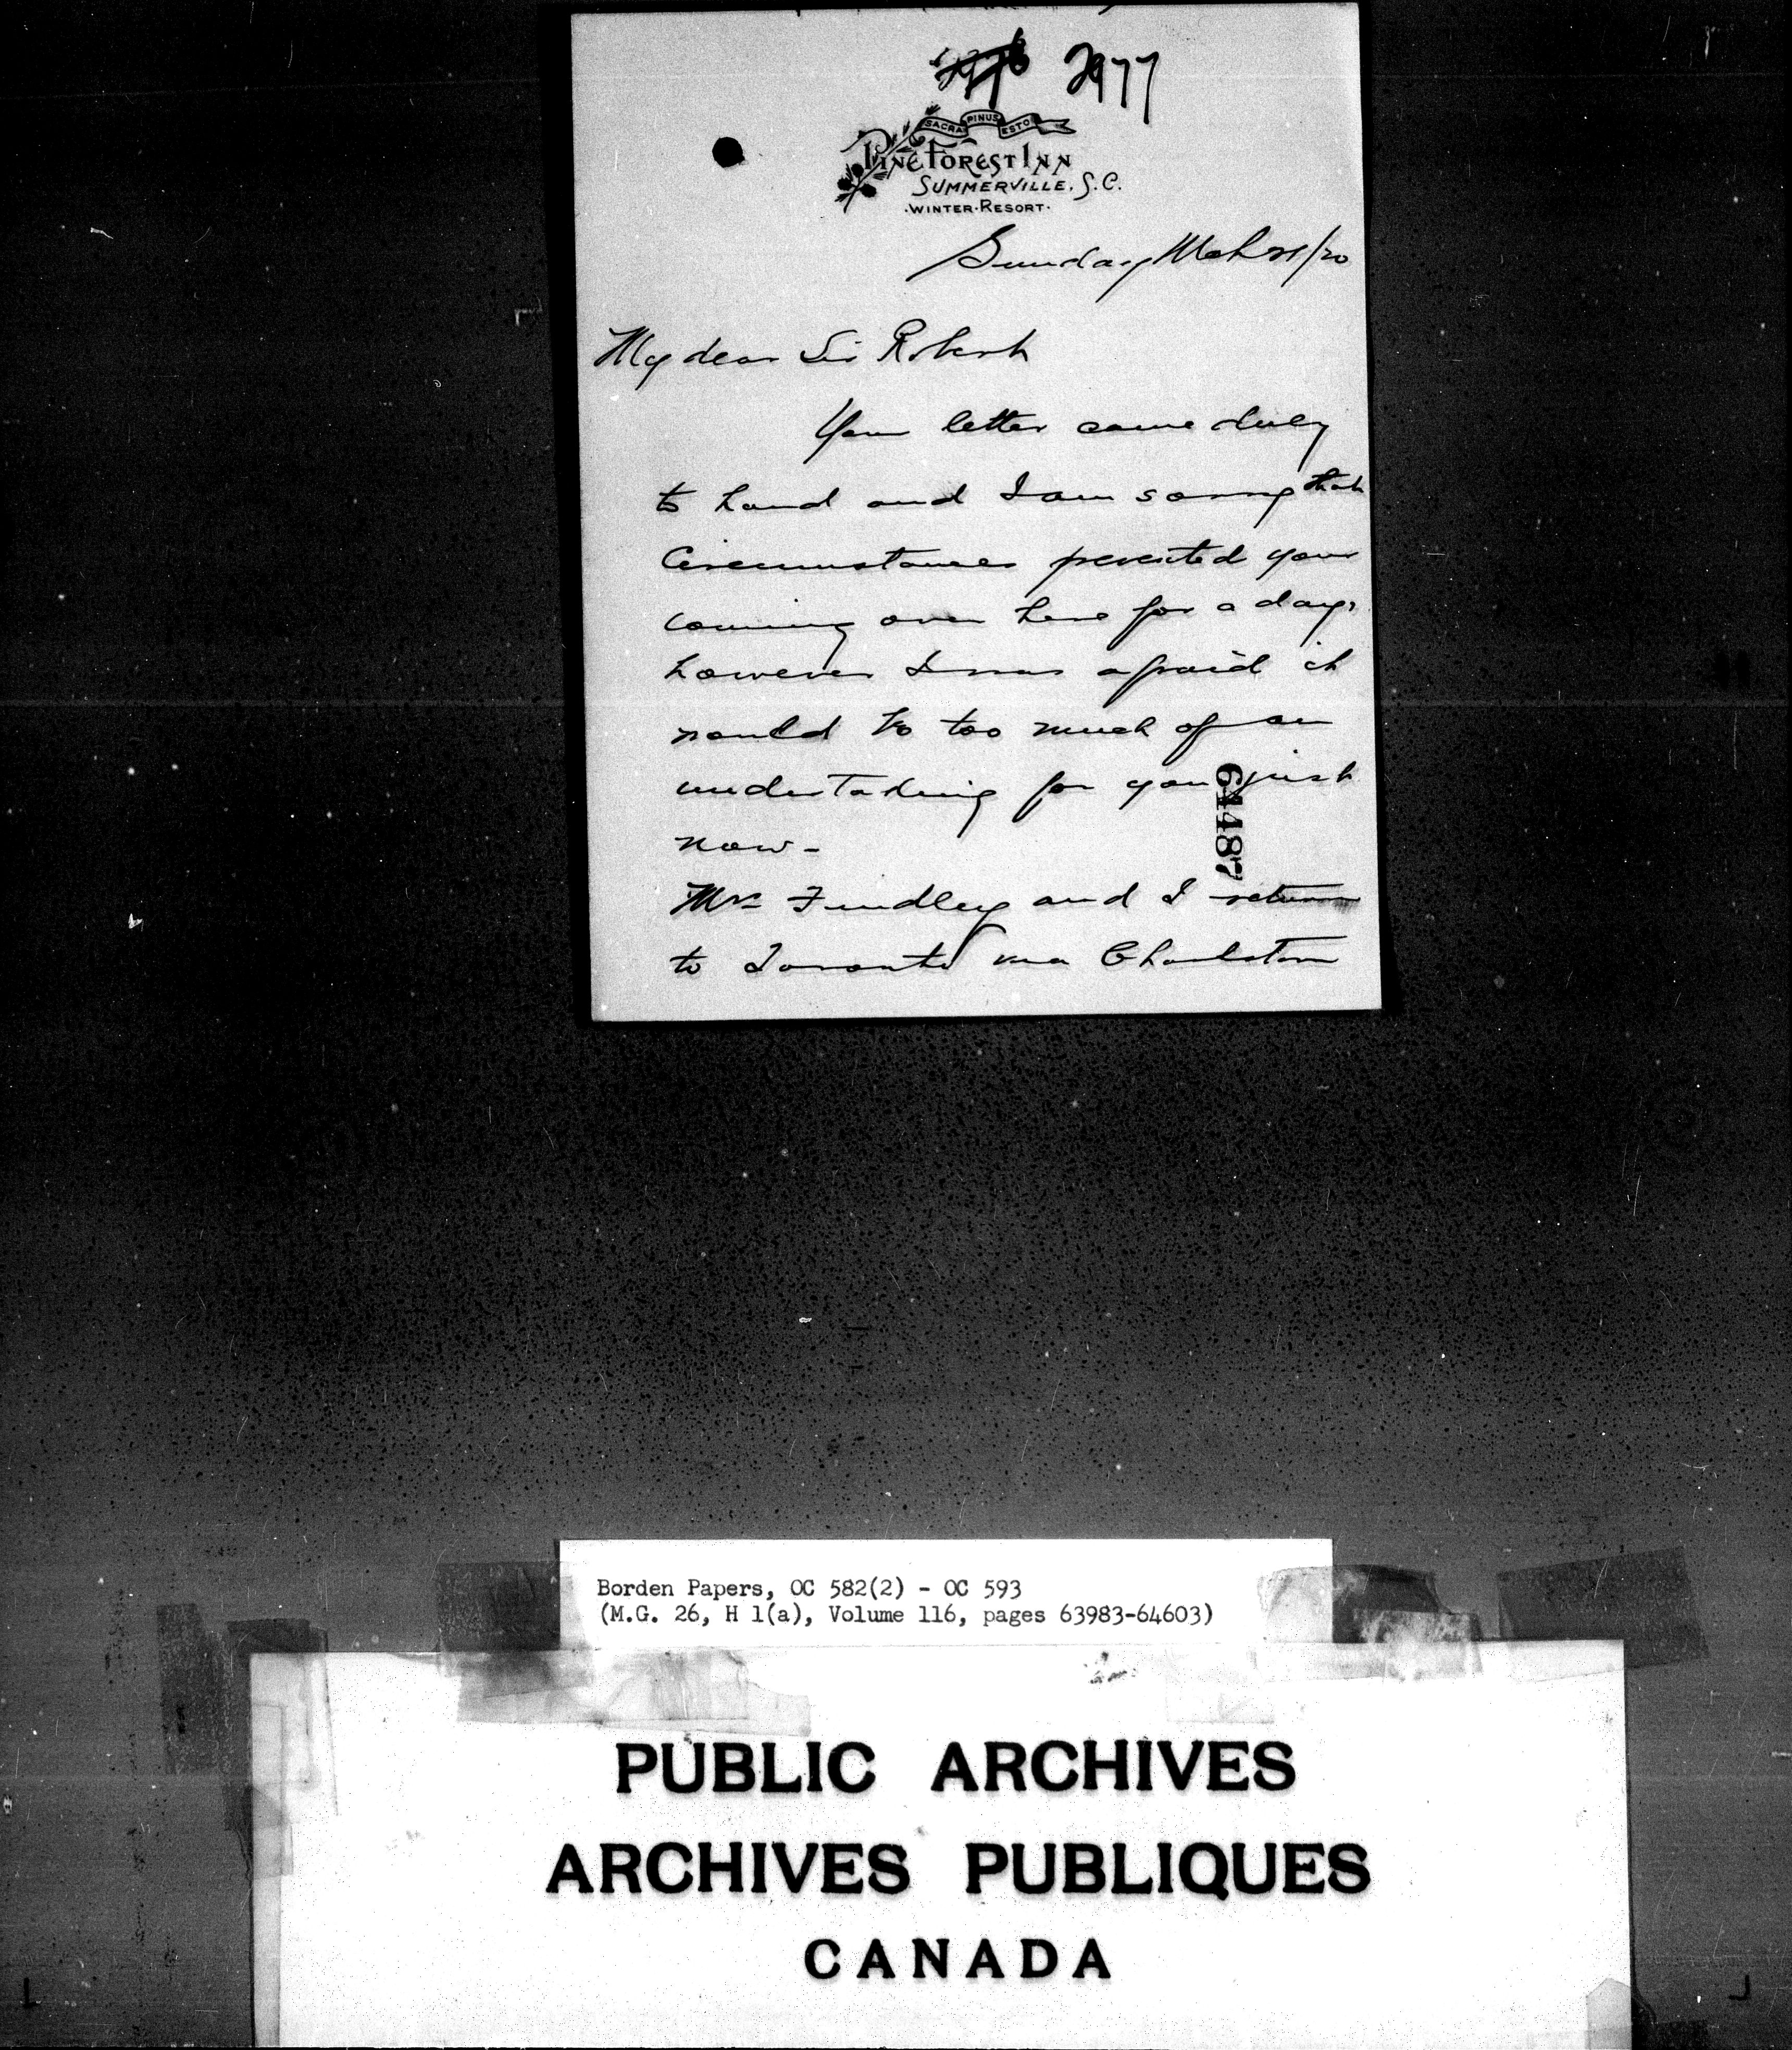 2976 2977
SACRA PINUS ESTO
PINE FOREST INN
SUMMERVILLE, S.C.
·WINTER·RESORT·
Sunday Mch 21/20
My dear Sir Robert
Your letter came duly
to hand and I am sorry that
Circumstances prevented your
coming over here for a day,
however I was afraid it
would be too much of an
undertaking for you just
now -
64487
Mrs Fundley and I return
to Toronto via Charleston
Borden Papers, OC 582(2) - OC 593
(M.G. 26, H 1(a), Volume 116, pages 63983-64603)
PUBLIC ARCHIVES
ARCHIVES PUBLIQUES
CANADA